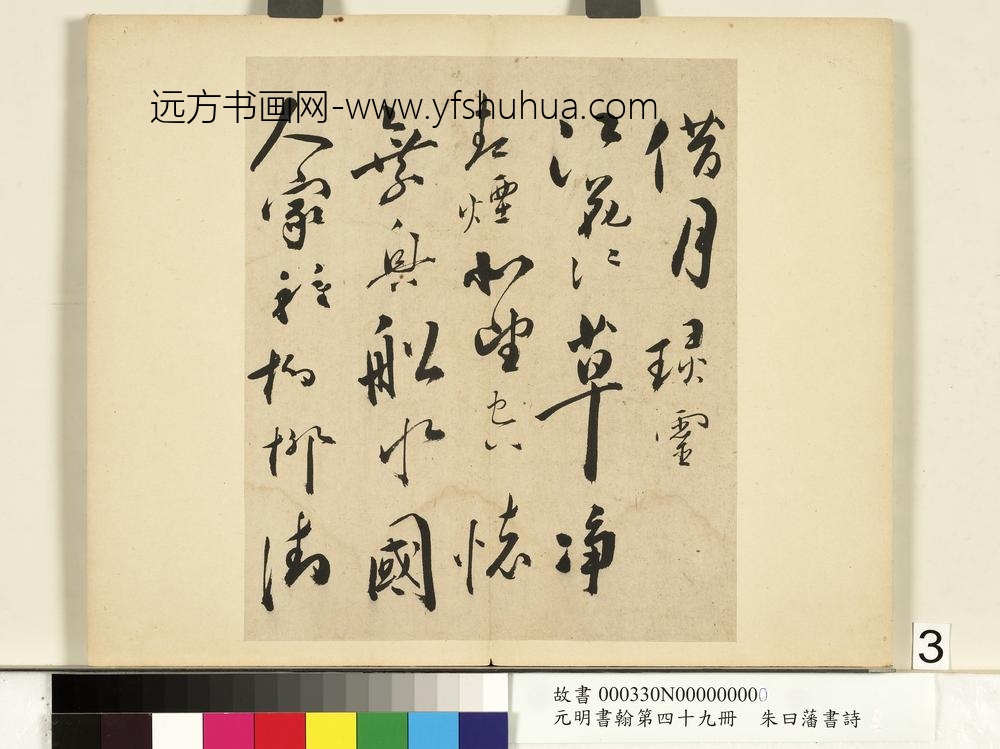 远方书画网-www.yfshuhua.com
借月
江花江草淨
春煙北望空懷
乘興船水國
人家種楊柳清
3
故書 000330N000000000
元明書翰第四十九冊 朱曰藩書詩